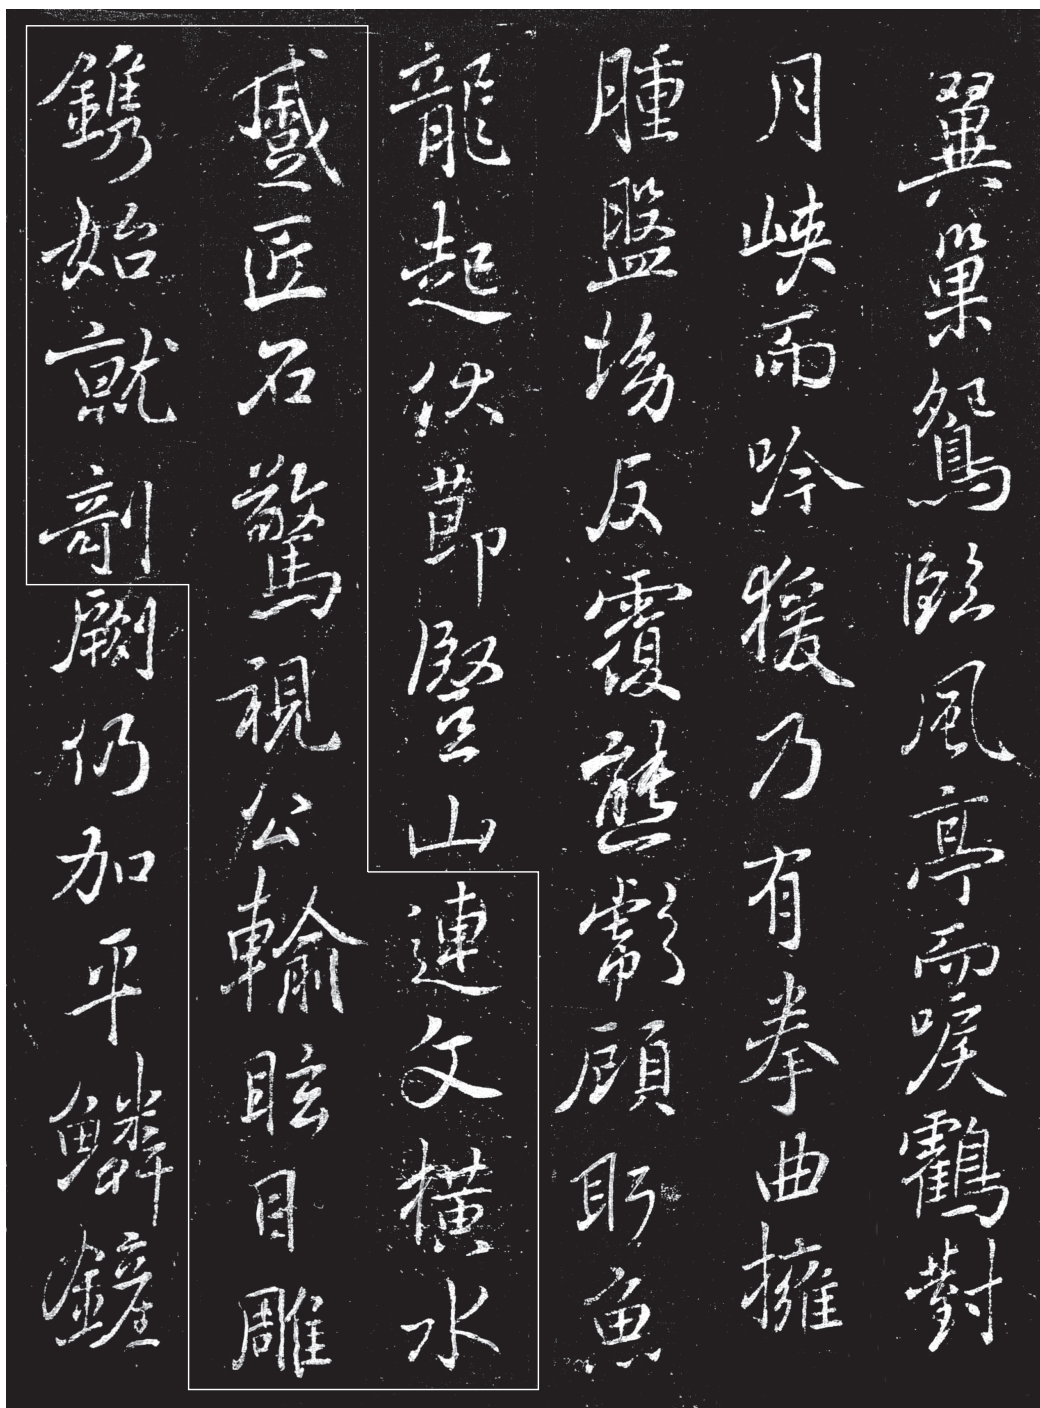 翼巢鴛臨風亭而唳鶴對
月峽而吟猨乃有拳曲擁
腫盤坳反覆熊彪顧盻魚
龍起伏莭豎山連文橫水
蹙匠石驚視公輸眩目雕
鐫始就剞劂仍加平鱗鏟